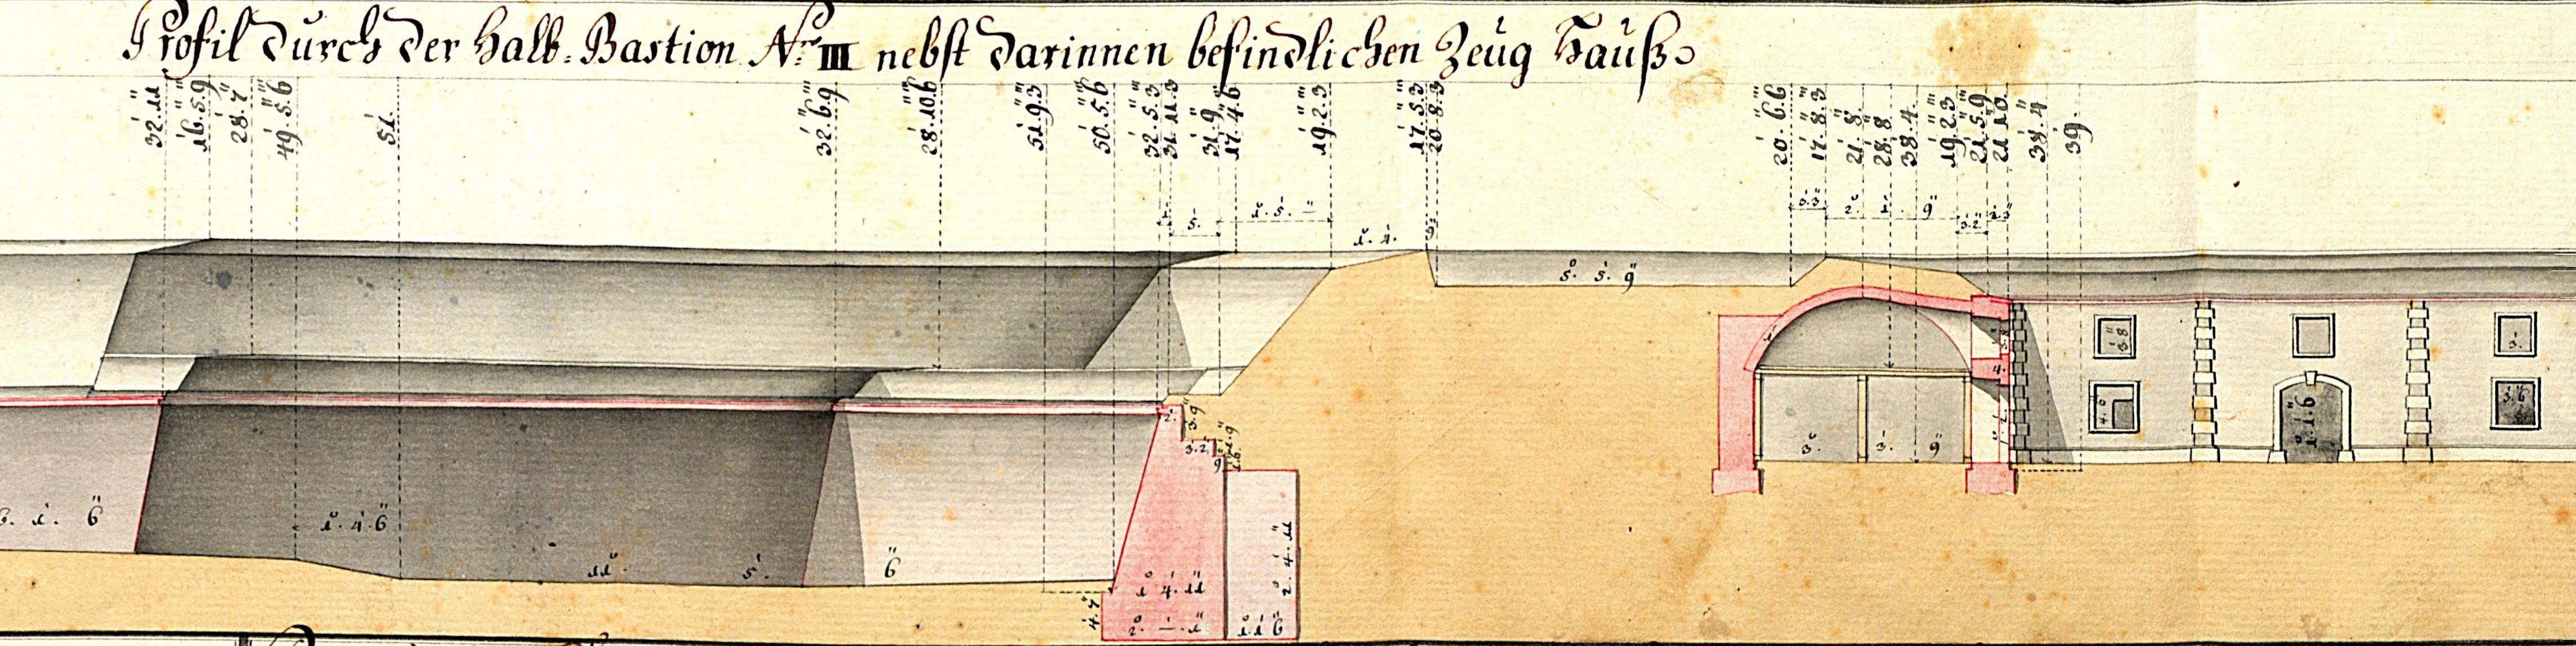 Profil durch der Halb=Bastion Nro: III nebst darinnen befindlichen Zeüg Hauß.
32.' 11."
16.' 5." 9.'''
28.' 7."
49.' 5." 6.'''
51.'
32.' 6." 9.'''
28.' 10." 6.'''
51.' 9." 3.'''
50.' 5." 6.'''
32.' 5." 3.'''
31.' 11." 3.'''
31.' 9."
17.' 4." 6.'''
19.' 2." 3.'''
17.' 5." 3.'''
20.' 8." 3.'''
20.' 6." 6.'''
17.' 8." 3.'''
21.' 8."
28.' 8."
38.' 4."
19.' 2." 3.'''
21.' 5." 9.'''
21.' 10."
38.' 4."
39.'
5.'
1.° 5.' –"
1.° 4.'
5.° 5.' 9."
3.' 3."
2.° 1.' 9."
3.' 2."
6."
1.° 4.' 6"
11.° 5.' 6"
2.'
3.' 9"
3.' 2."
9"
1.° 4.' 11"
2.° –. 1."
4.' 7."
1.° 1.' 6"
2.° 4.' 11"
3.° 3.' 9"
4.'
3.' 8"
4.' 6"
1.° 1.' 6"
3.'
3.' 6"